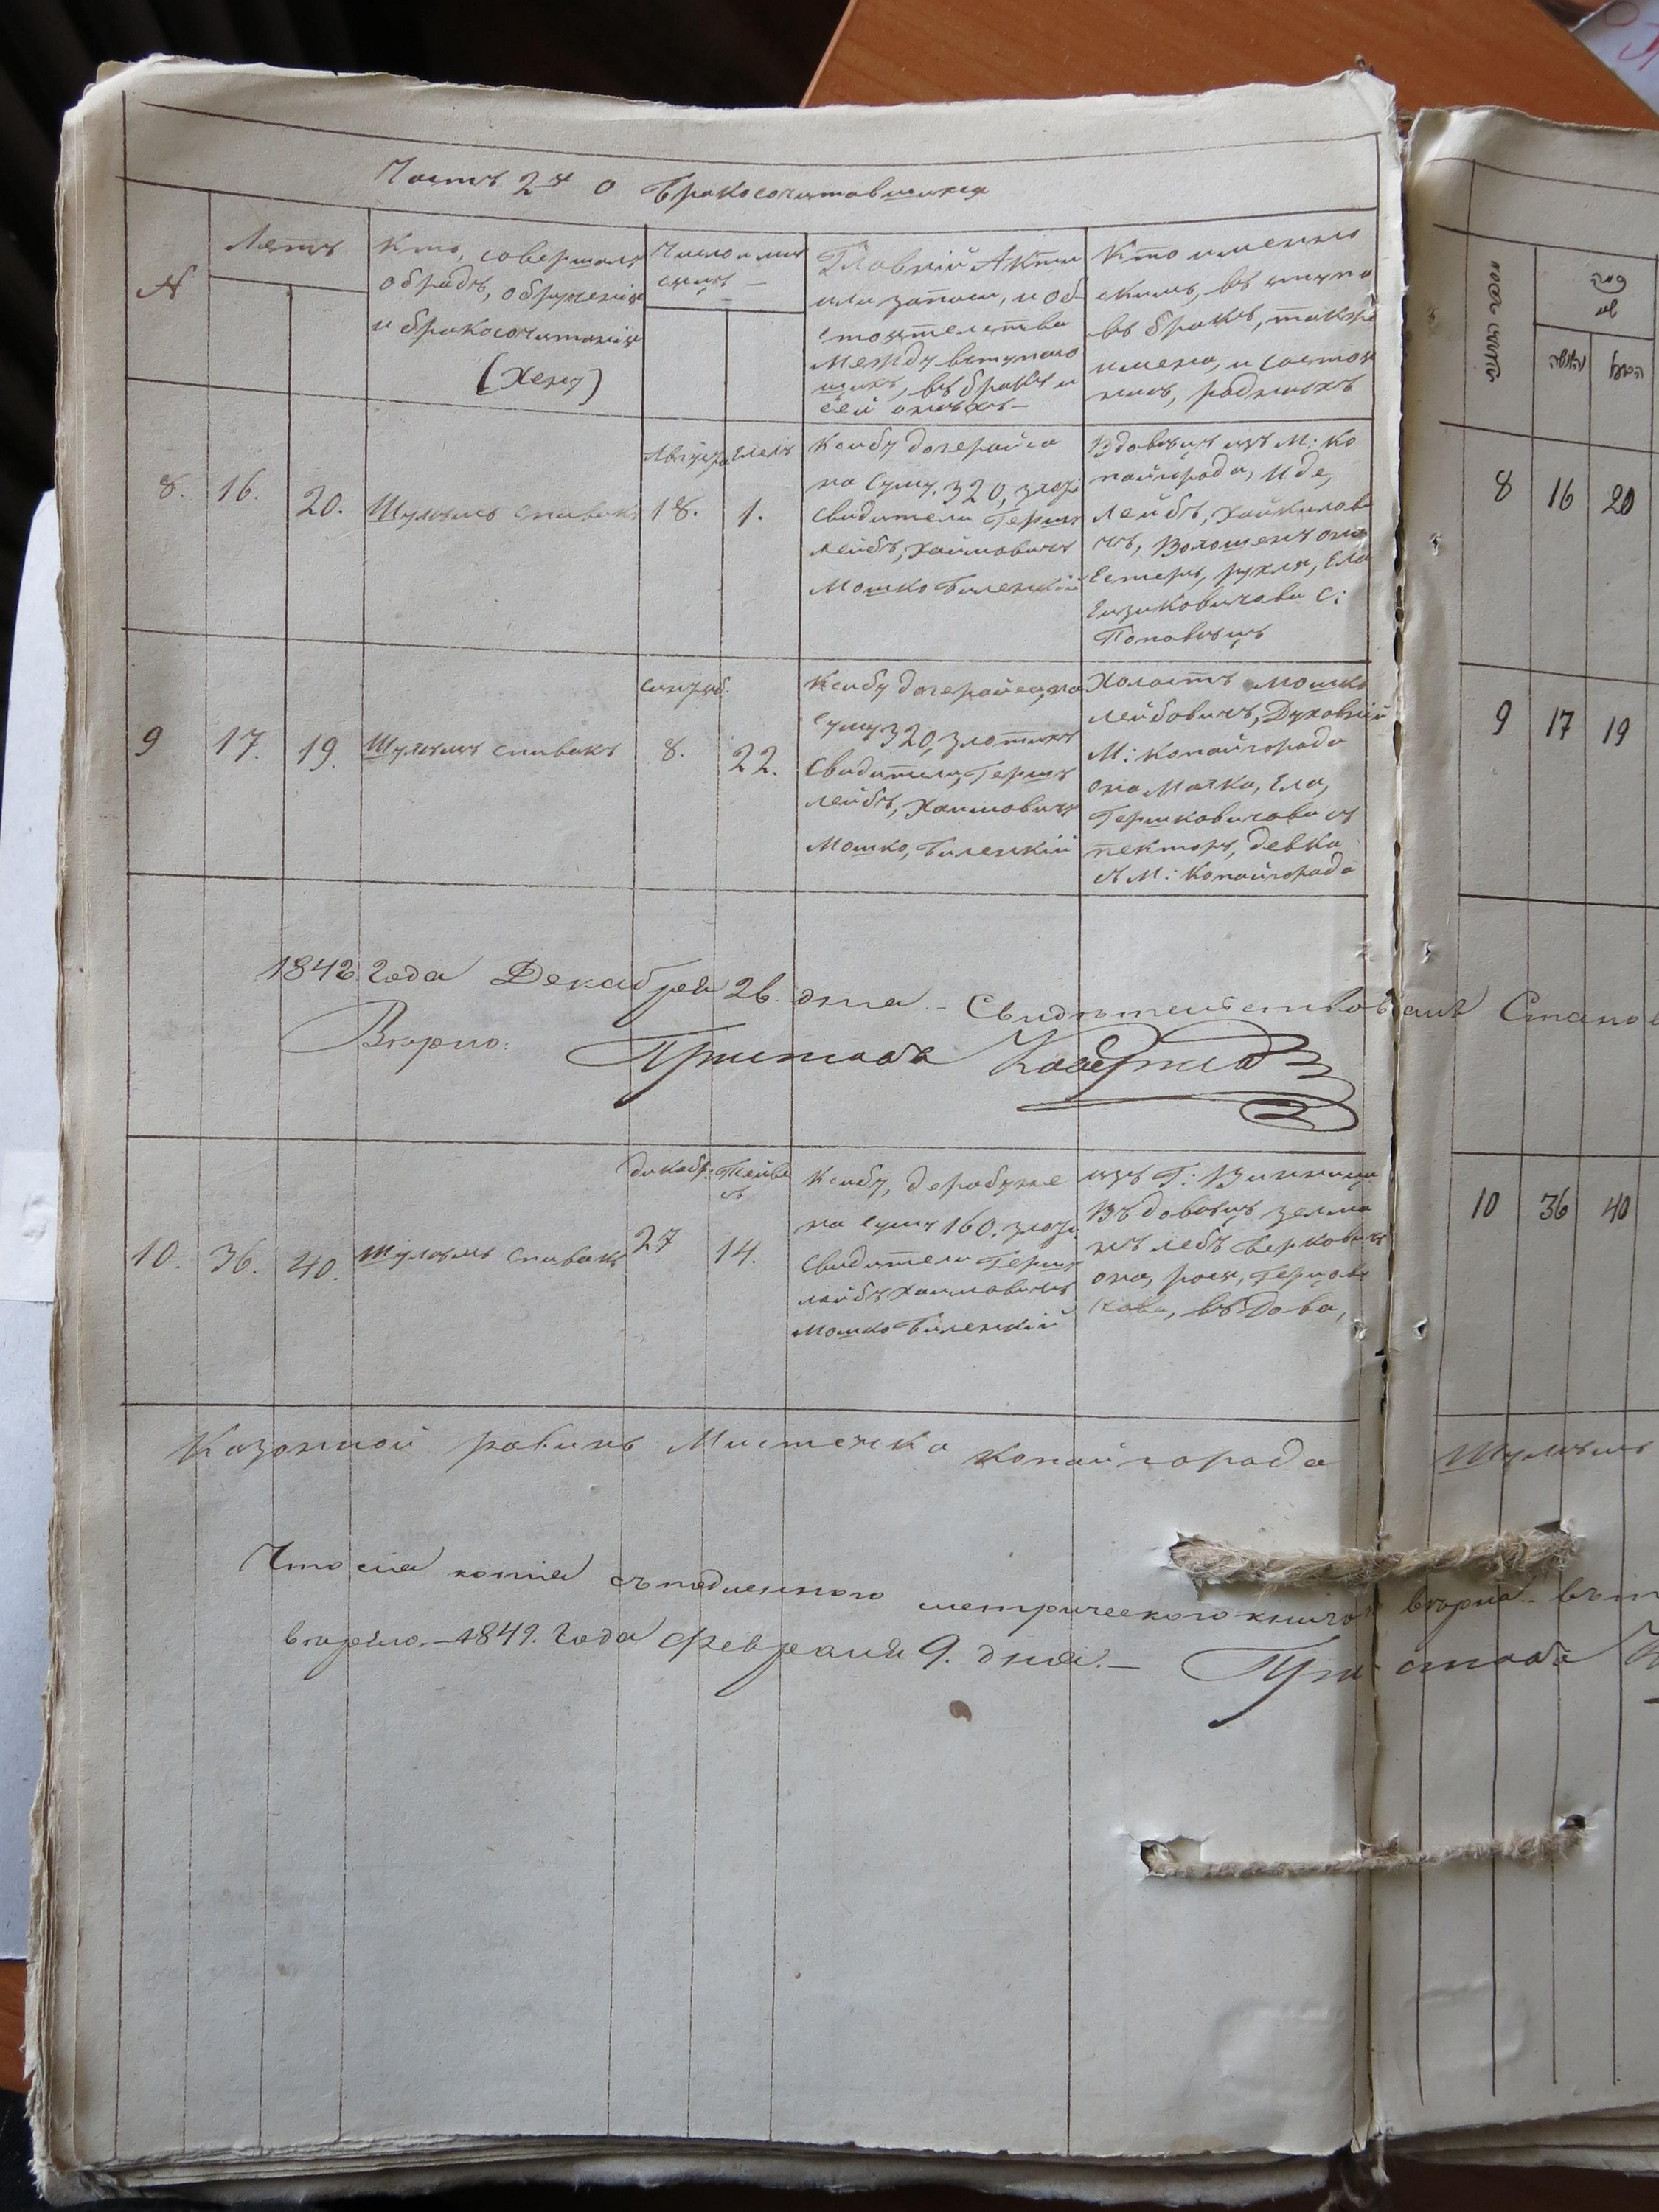 Часть 2я о Бракосочитавшихся
№
Летъ
Кто, совершалъ
обрадъ, обрученія
и бракосочитанія
(Хену)
Число и мис
сицъ —
Главній Актъ
или записи, и об-
стоятелства
Между вступаю
щихъ, въ бракъ и
Кто именно
скимъ, въ ступа
въ бракъ, также
имена, и состоя
нихъ, родныхъ
8.
16.
20.
Шулимъ Спивакъ
Августа
Елелъ
18.
1.
Ксибу догерайса
на Суму. 320, злоти
Свидители Гершъ
лейбъ, Хаимовичъ
Мошко Биленкій
Вдовецъ изъ М: Ко
пайгрода, Иде,
Лейбъ, Хайкилови
чъ, Волошенъ она
Естеръ, рухля, Ела
Еизиковичова С:
Поповецъ
9
17.
19.
Шулимъ спивакъ
8.
22.
Ксибу догерайса, на
Суму 320, злотихъ
Свидители, Гершъ
лейбъ, Хаимовичъ
Мошко, Биленкій
Холостъ Мошко
лейбовичъ, Духовній
М: Копайгорода
она Малка, Ела,
Гершковичова съ
пекторъ, девка
съ М: Копайгорода
1842 Года Декабрей 26. дня — Свидѣтельствовалъ Станов
Вѣрно: Приставъ
10.
36.
40.
Шулимъ Спивакъ
Декабр:
Тейве
съ
27
14.
Ксибу, дерабуне
на Суму 160. злоти
Свидители Гершъ
лейбъ Хаимовичъ
Мошко Биленкій
изъ Г: Винници
Въдовецъ зелма
нъ лебъ Берковичъ
она, рося, Гершов
кова, въдова,
Казонной равинъ Мистечка Копайгорода Шулимъ
Что сіа копіа съ подленного метрического книгою вѣрна — въ т
вѣрено. — 1849. Года Февралй 9. дня. — Приставъ
מספר
8 16 20
9 17 19
10 36 40